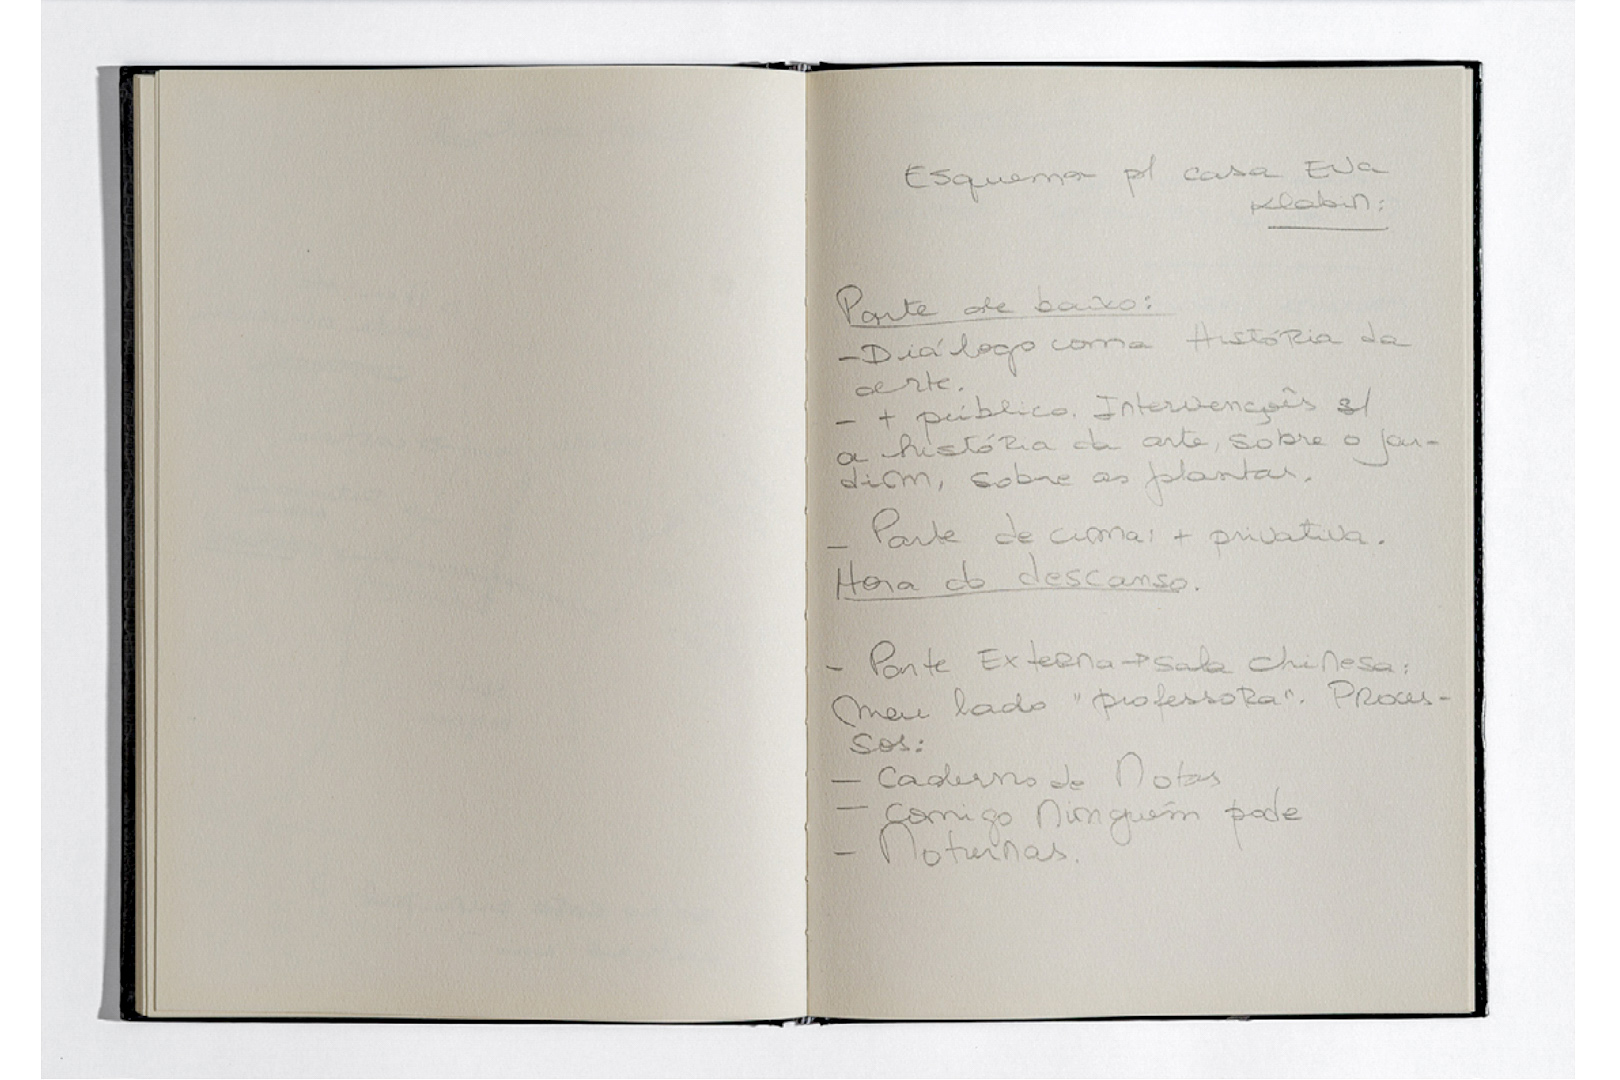 Esquema p/ casa Eva
Klabin:
Parte de baixo:
- Diálogo com a História da
arte.
- + público. Intervenções s/
a história da arte, sobre o jar-
dim, sobre as plantas.
- Parte de cima: + privativa.
Hora do descanso.
- Parte Externa → sala chinesa:
Meu lado "professora". Proces-
sos:
- Caderno de Notas
- Comigo Ninguém pode
- Noturnas.